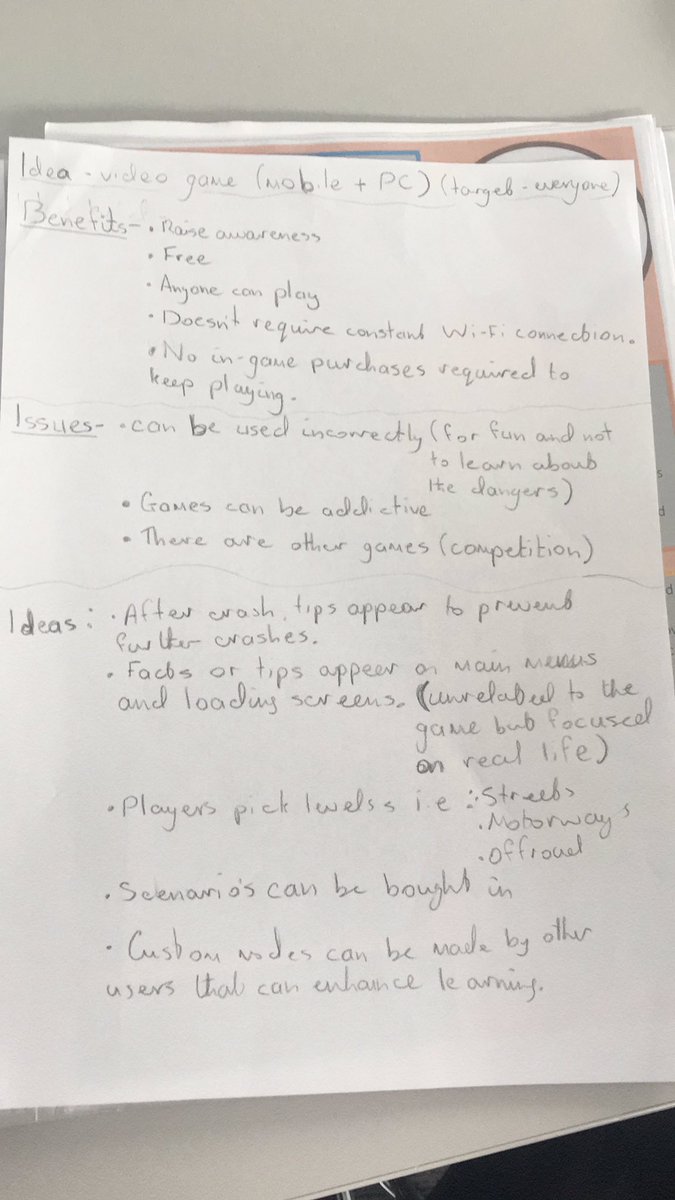 Idea - video game (mobile + PC) (target - everyone)
Benefits - • Raise awareness
• Free
• Anyone can play
• Doesn't require constant Wi-Fi connection.
• No in-game purchases required to
keep playing.
Issues - • can be used incorrectly (for fun and not
to learn about
the dangers)
• Games can be addictive
• There are other games (competition)
Ideas: • After crash, tips appear to prevent
further crashes.
• Facts or tips appear on main menus
and loading screens. (unrelated to the
game but focused
on real life)
• Players pick levels i.e : • Streets
• Motorways
• Offroad
• Scenario's can be bought in
• Custom modes can be made by other
users that can enhance learning.